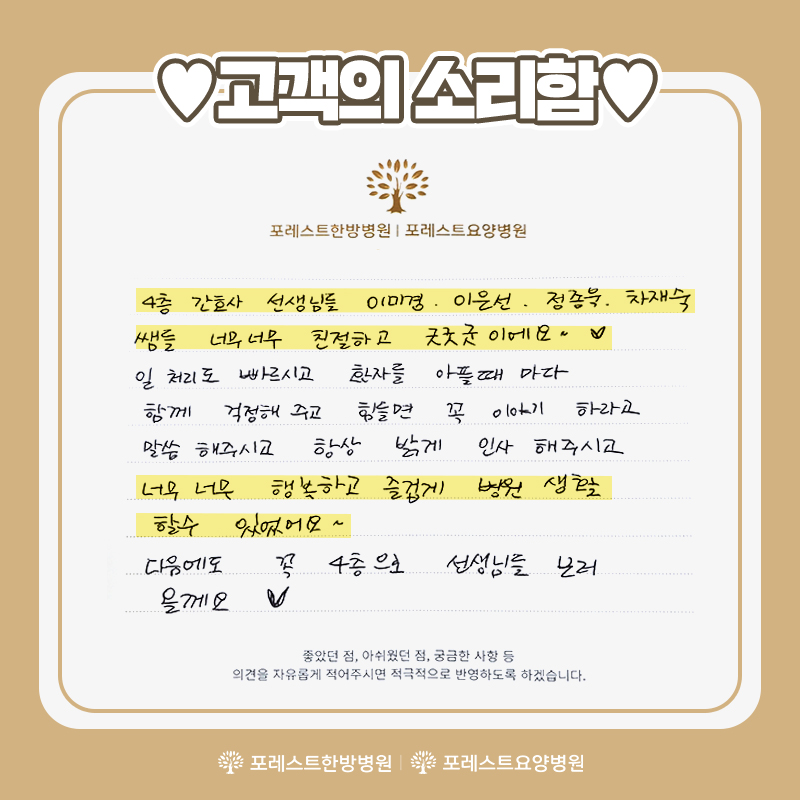 ♥고객의 소리함♥
포레스트한방병원 | 포레스트요양병원
4층 간호사 선생님들 이미경. 이은선. 정종북. 차재숙
쌤들 너무너무 친절하고 굿굿굿이에요~ ♥
일 처리도 빠르시고 환자들 아플때 마다
함께 걱정해 주고 힘들면 꼭 이야기 하라고
말씀 해주시고 항상 밝게 인사 해주시고
너무 너무 행복하고 즐겁게 병원 생활
할수 있었어요~
다음에도 꼭 4층으로 선생님들 보러
올께요 ♥
좋았던 점, 아쉬웠던 점, 궁금한 사항 등
의견을 자유롭게 적어주시면 적극적으로 반영하도록 하겠습니다.
포레스트한방병원 | 포레스트요양병원